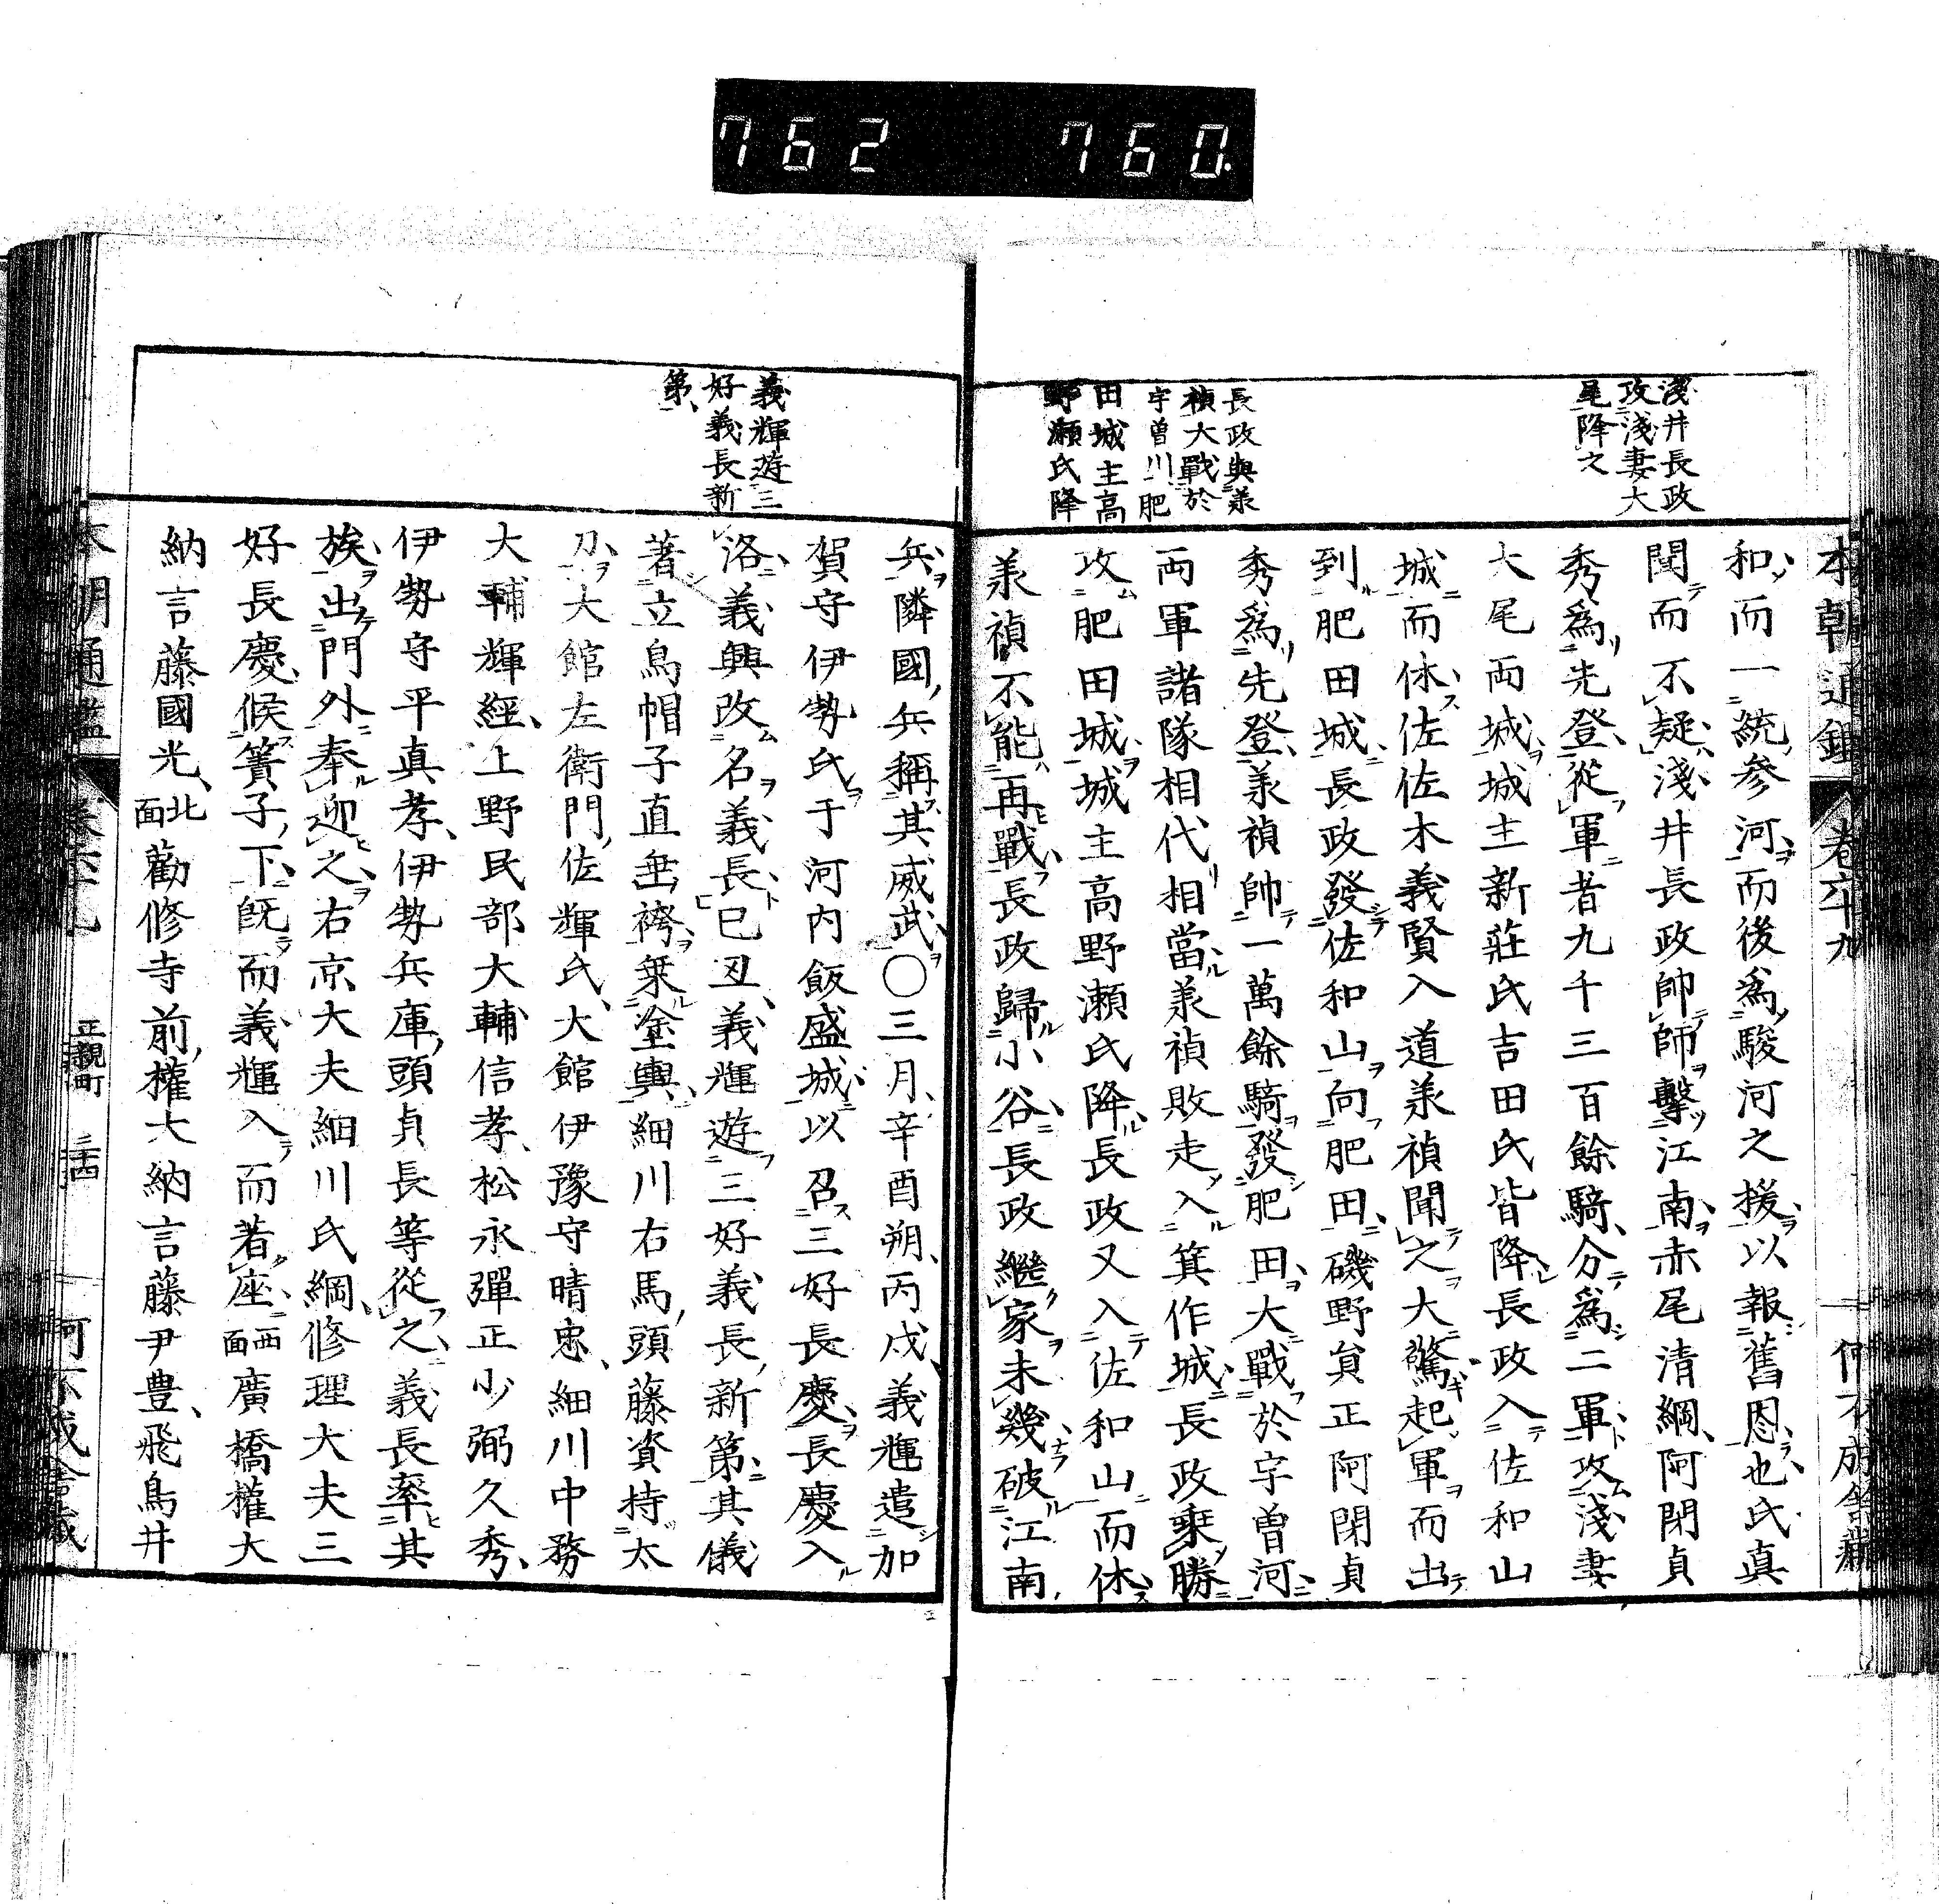 762 760
本朝通鑑 卷六十九
淺井長政
攻淺妻大
尾降之
長政與義
禎大戰於
宇曽川肥
田城主高
野瀬氏降
和而一統參河而後為駿河之援以報舊恩也氏真
聞而不疑淺井長政帥師擊江南赤尾清綱阿閉貞
秀為先登從軍者九千三百餘騎分為二軍攻淺妻
大尾両城城主新莊氏吉田氏皆降長政入佐和山
城而休佐佐木義賢入道義禎聞之大驚起軍而出
到肥田城長政發佐和山向肥田磯野員正阿閉貞
秀為先登義禎帥一萬餘騎發肥田大戰於宇曽河
両軍諸隊相代相當義禎敗走入箕作城長政乗勝
攻肥田城城主高野瀬氏降長政又入佐和山而休
義禎不能再戰長政歸小谷長政繼家未幾破江南
義輝遊三
好義長新
第
兵隣國兵稱其威武〇三月辛酉朔丙戌義輝遣加
賀守伊勢氏于河内飯盛城以召三好長慶長慶入
洛義興改名義長己丑義輝遊三好義長新第其儀
著立烏帽子直垂袴乗塗輿細川右馬頭藤資持太
刀大館左衛門佐輝氏大館伊豫守晴忠細川中務
大輔輝經上野民部大輔信孝松永彈正少弼久秀
伊勢守平真孝伊勢兵庫頭貞長等從之義長率其
族出門外奉迎之右京大夫細川氏綱修理大夫三
好長慶候簀子下既而義輝入而著座西面廣橋權大
納言藤國光北面勸修寺前權大納言藤尹豊飛鳥井
本朝通鑑 正親町 三十四